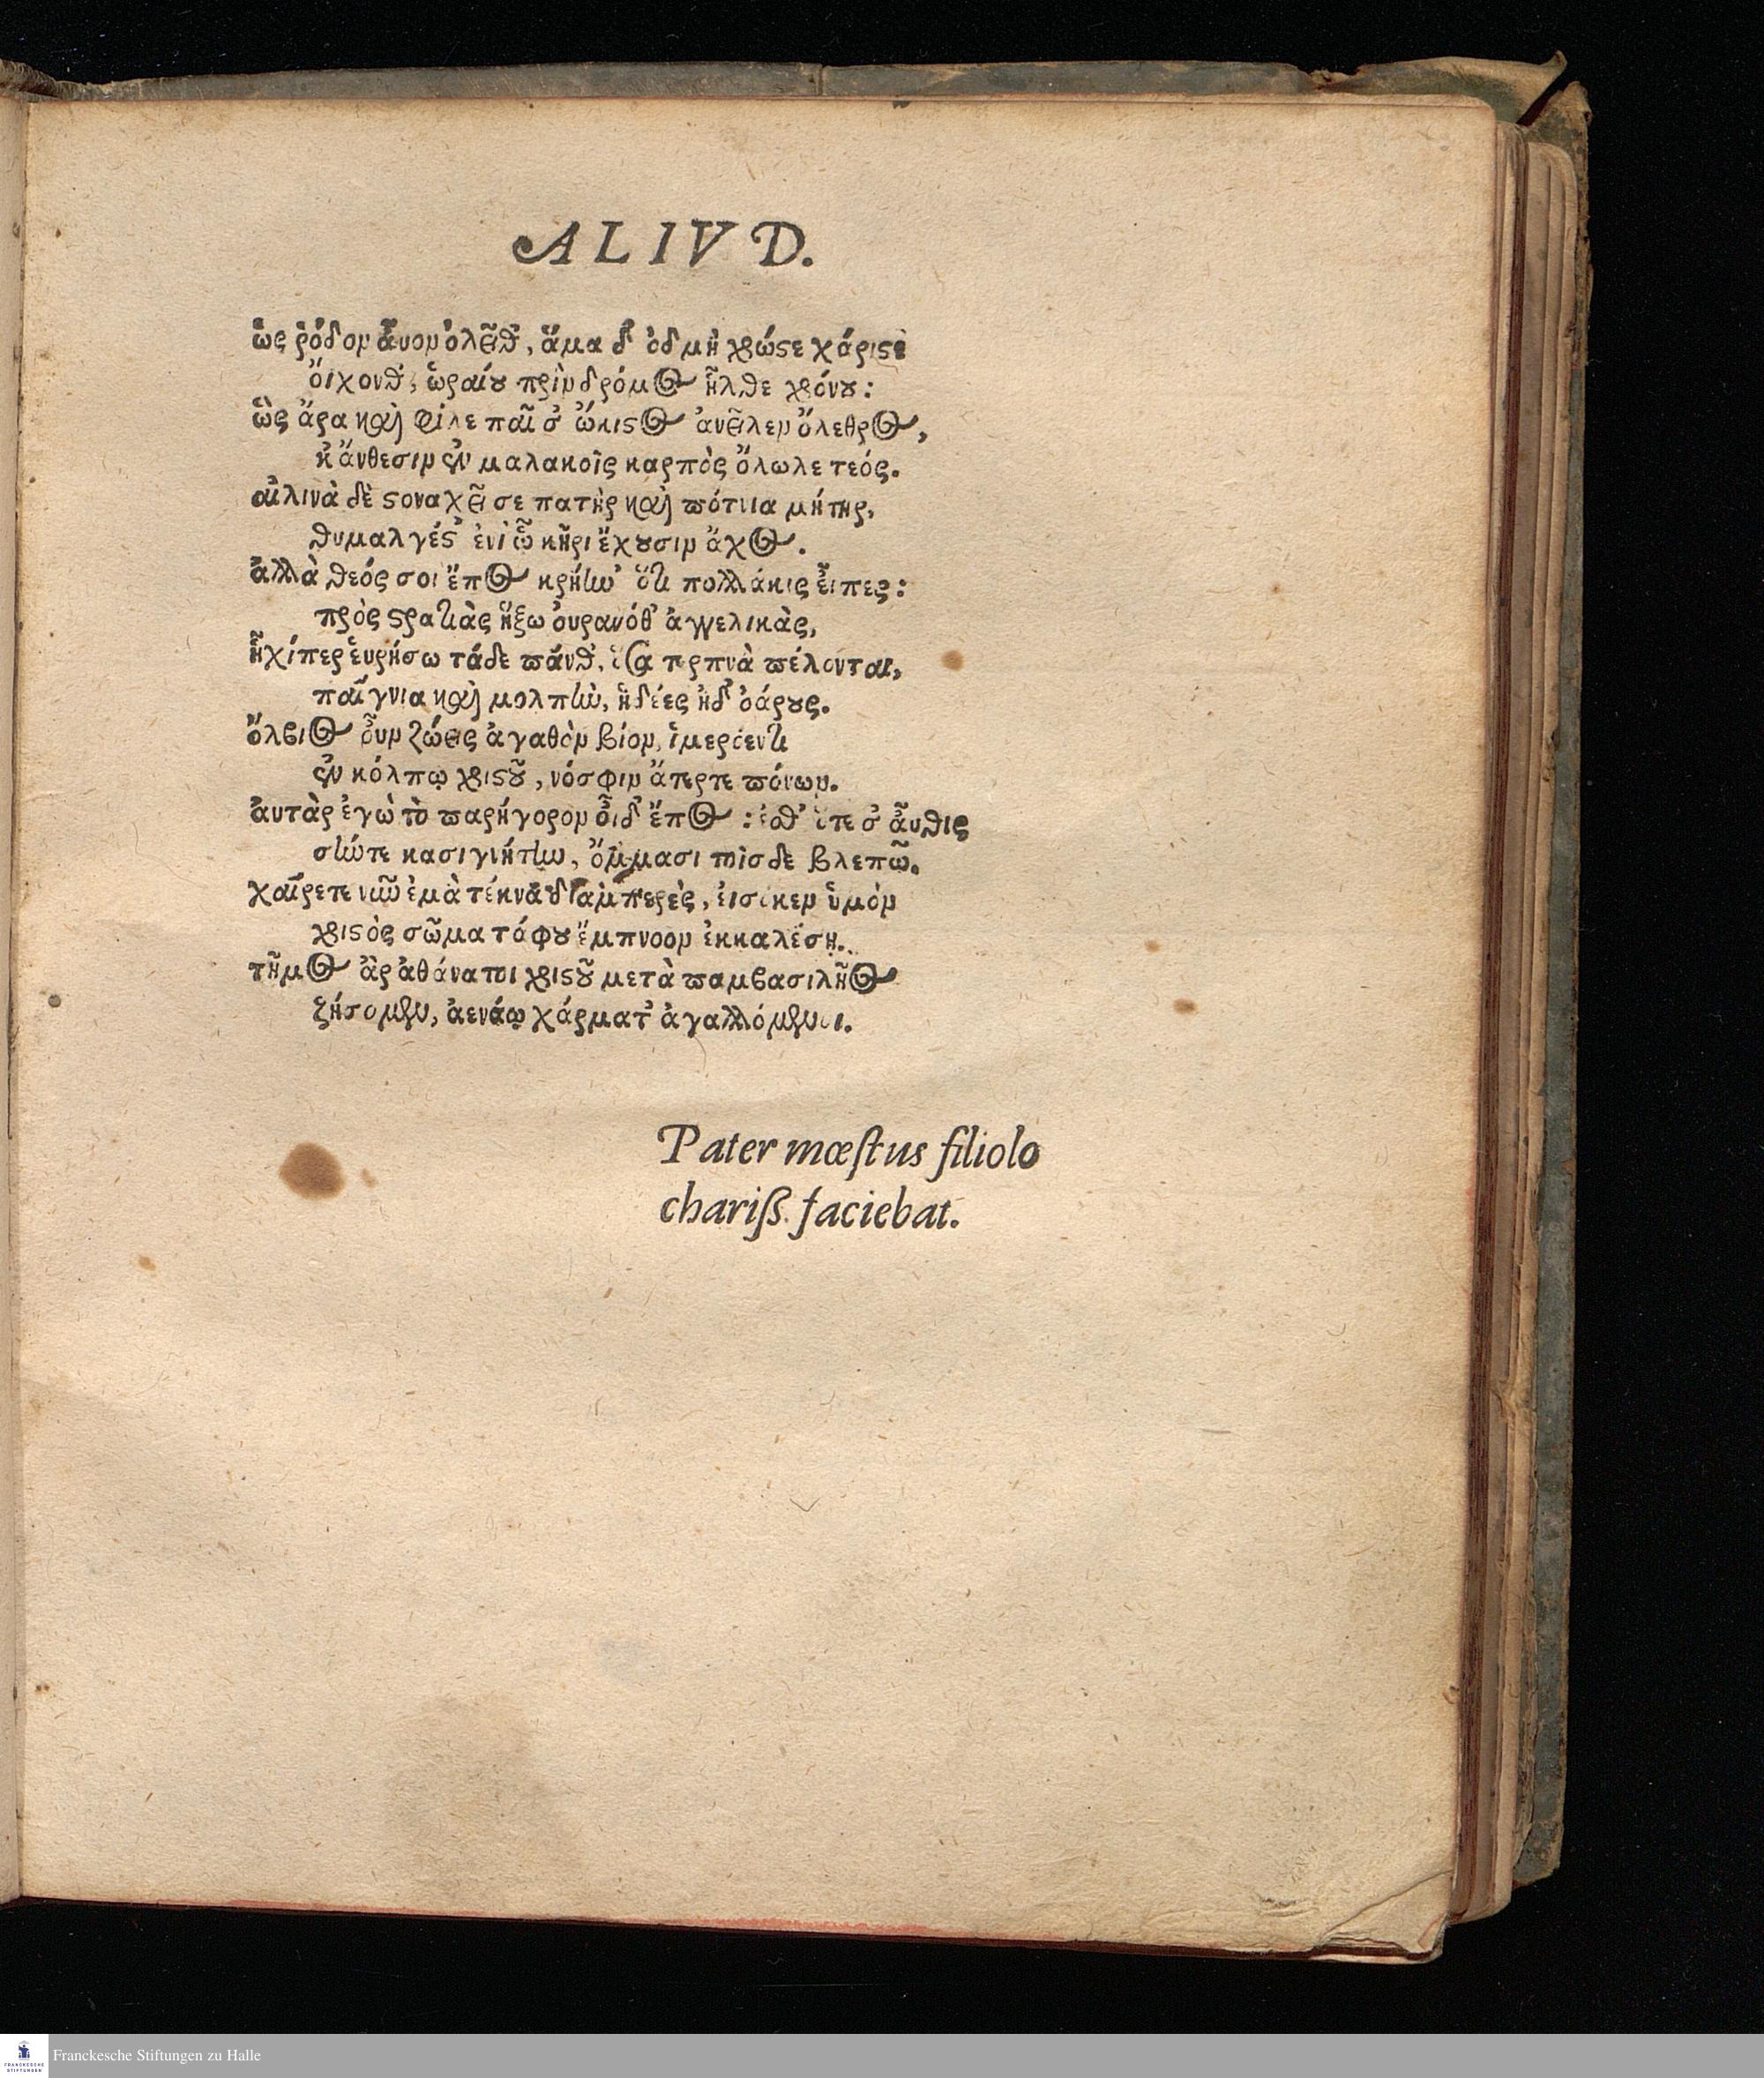 ALIVD.
ὡς ῥόδον ἆνον ὀλεῖθ', ἅμα δ' ὀδμὴ χρώς τε χάρις τε
ὄιχονθ', ὡραίου πρὶν δρόμος ἦλθε χρόνου:
ὣς ἄρα καὶ φίλε παῖ σ' ὤκιστος ἀνεῖλεν ὄλεθρος,
κἄνθεσιν ἐν μαλακοῖς καρπὸς ὄλωλε τεός.
αἴλινὰ δὲ στοναχεῖ σε πατὴρ καὶ πότνια μήτηρ,
θυμαλγές τ' ἐνὶ ᾧ κῆρι ἔχουσιν ἄχος.
ἀλλὰ θεός σοι ἔπος κρήην' ὅτι πολλάκις εἶπες:
πρὸς στρατιὰς ἥξω ὀυρανόθ' ἀγγελικὰς,
ἧχίπερ ἑυρήσω τάδε πάνθ', ὅσσα τερπνὰ πέλονται,
παίγνια καὶ μολπὴν, ἡδέες ἠδ' ὀάρους.
ὄλβιος οὖν ζώεις ἀγαθὸν βίον, ἱμερόεντι
ἐν κόλπῳ χριστοῦ, νόσφιν ἄτερτε πόνων.
ἀυτὰρ ἐγὼ τὸ παρήγορον οἶδ' ἔπος: ἔσθ' ὅτε σ' αὖθις
σήντε κασιγνήτην, ὄμμασι τοῖσδε βλεπῶ.
χαίρετε νῦν ἐμὰ τέκνα διαμπερὲς, ἐισόκεν ὑμὸν
χριστὸς σῶμα τάφου ἔμπνοον ἐκκαλέσῃ.
τῆμος ἂρ ἀθάνατοι χριστοῦ μετὰ παμβασιλῆος
ζήσομεν, ἀενάῳ χάρματ' ἀγαλλόμενοι.
Pater mœſtus filiolo
chariß. faciebat.
Franckesche Stiftungen zu Halle
FRANCKESCHE STIFTUNGEN